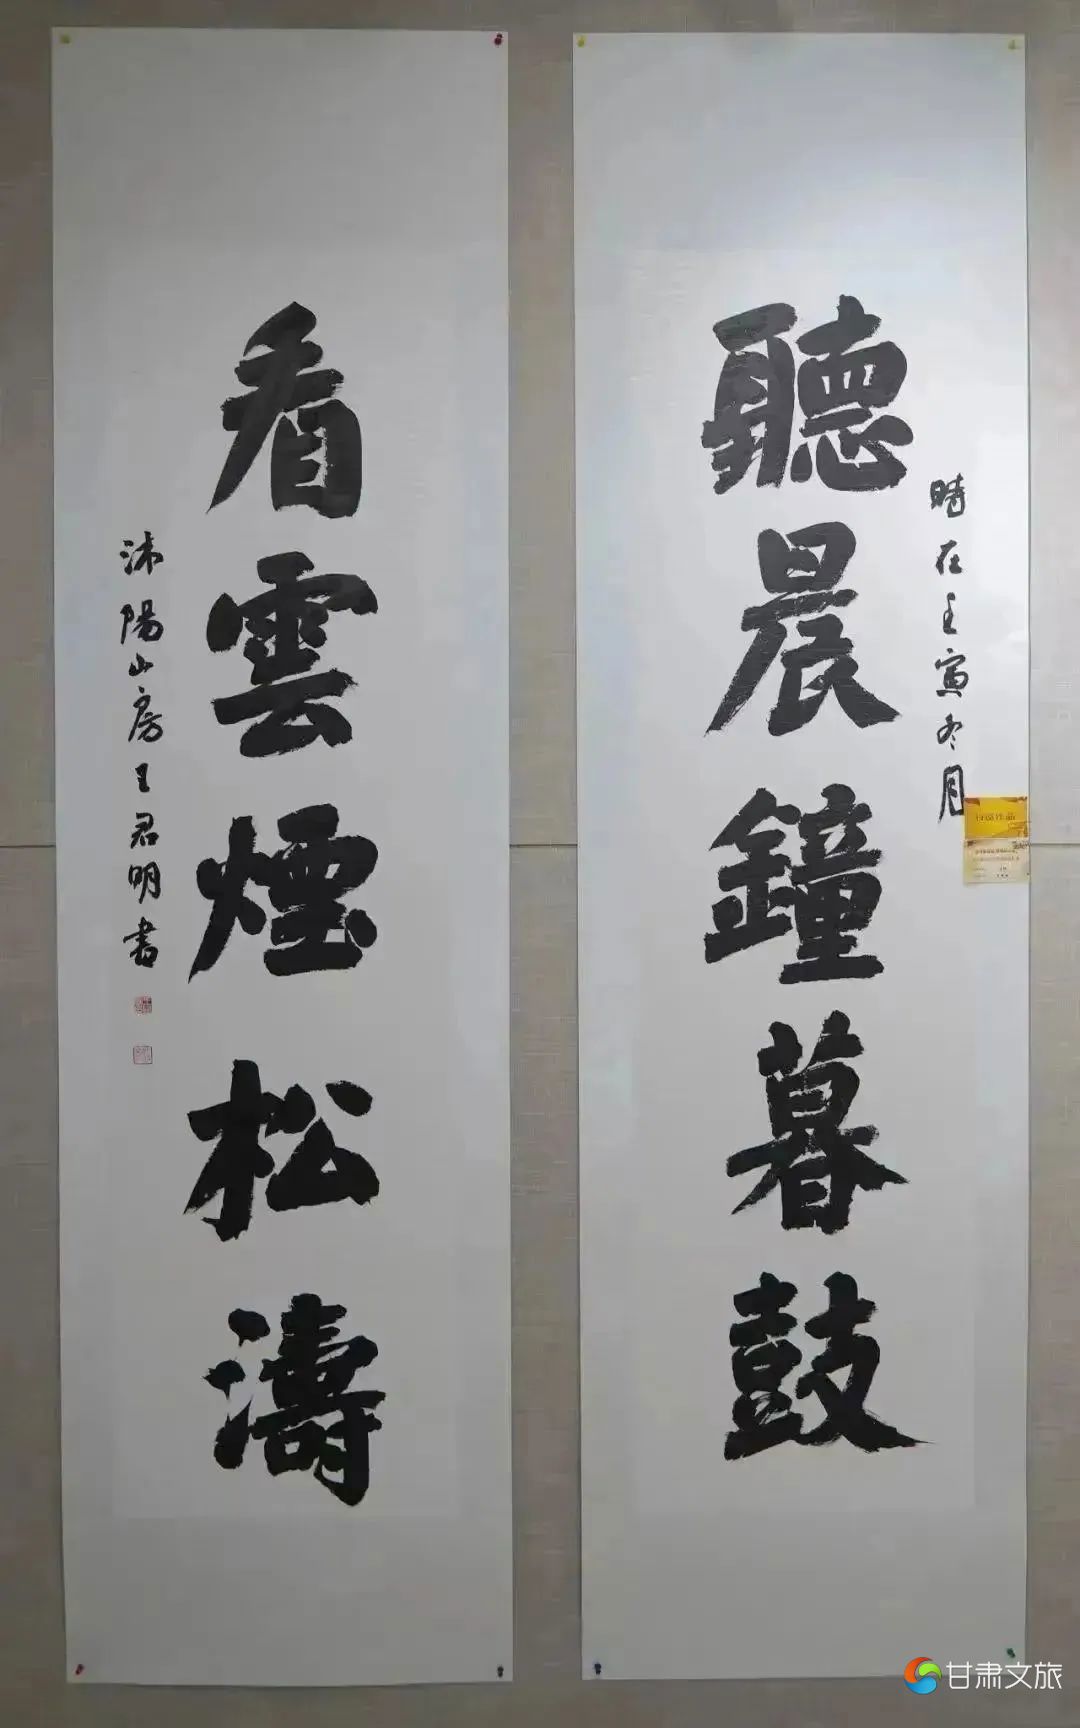 聽晨鐘暮鼓
時在壬寅冬月
看雲煙松濤
沐陽山房王君明書
甘肃文旅